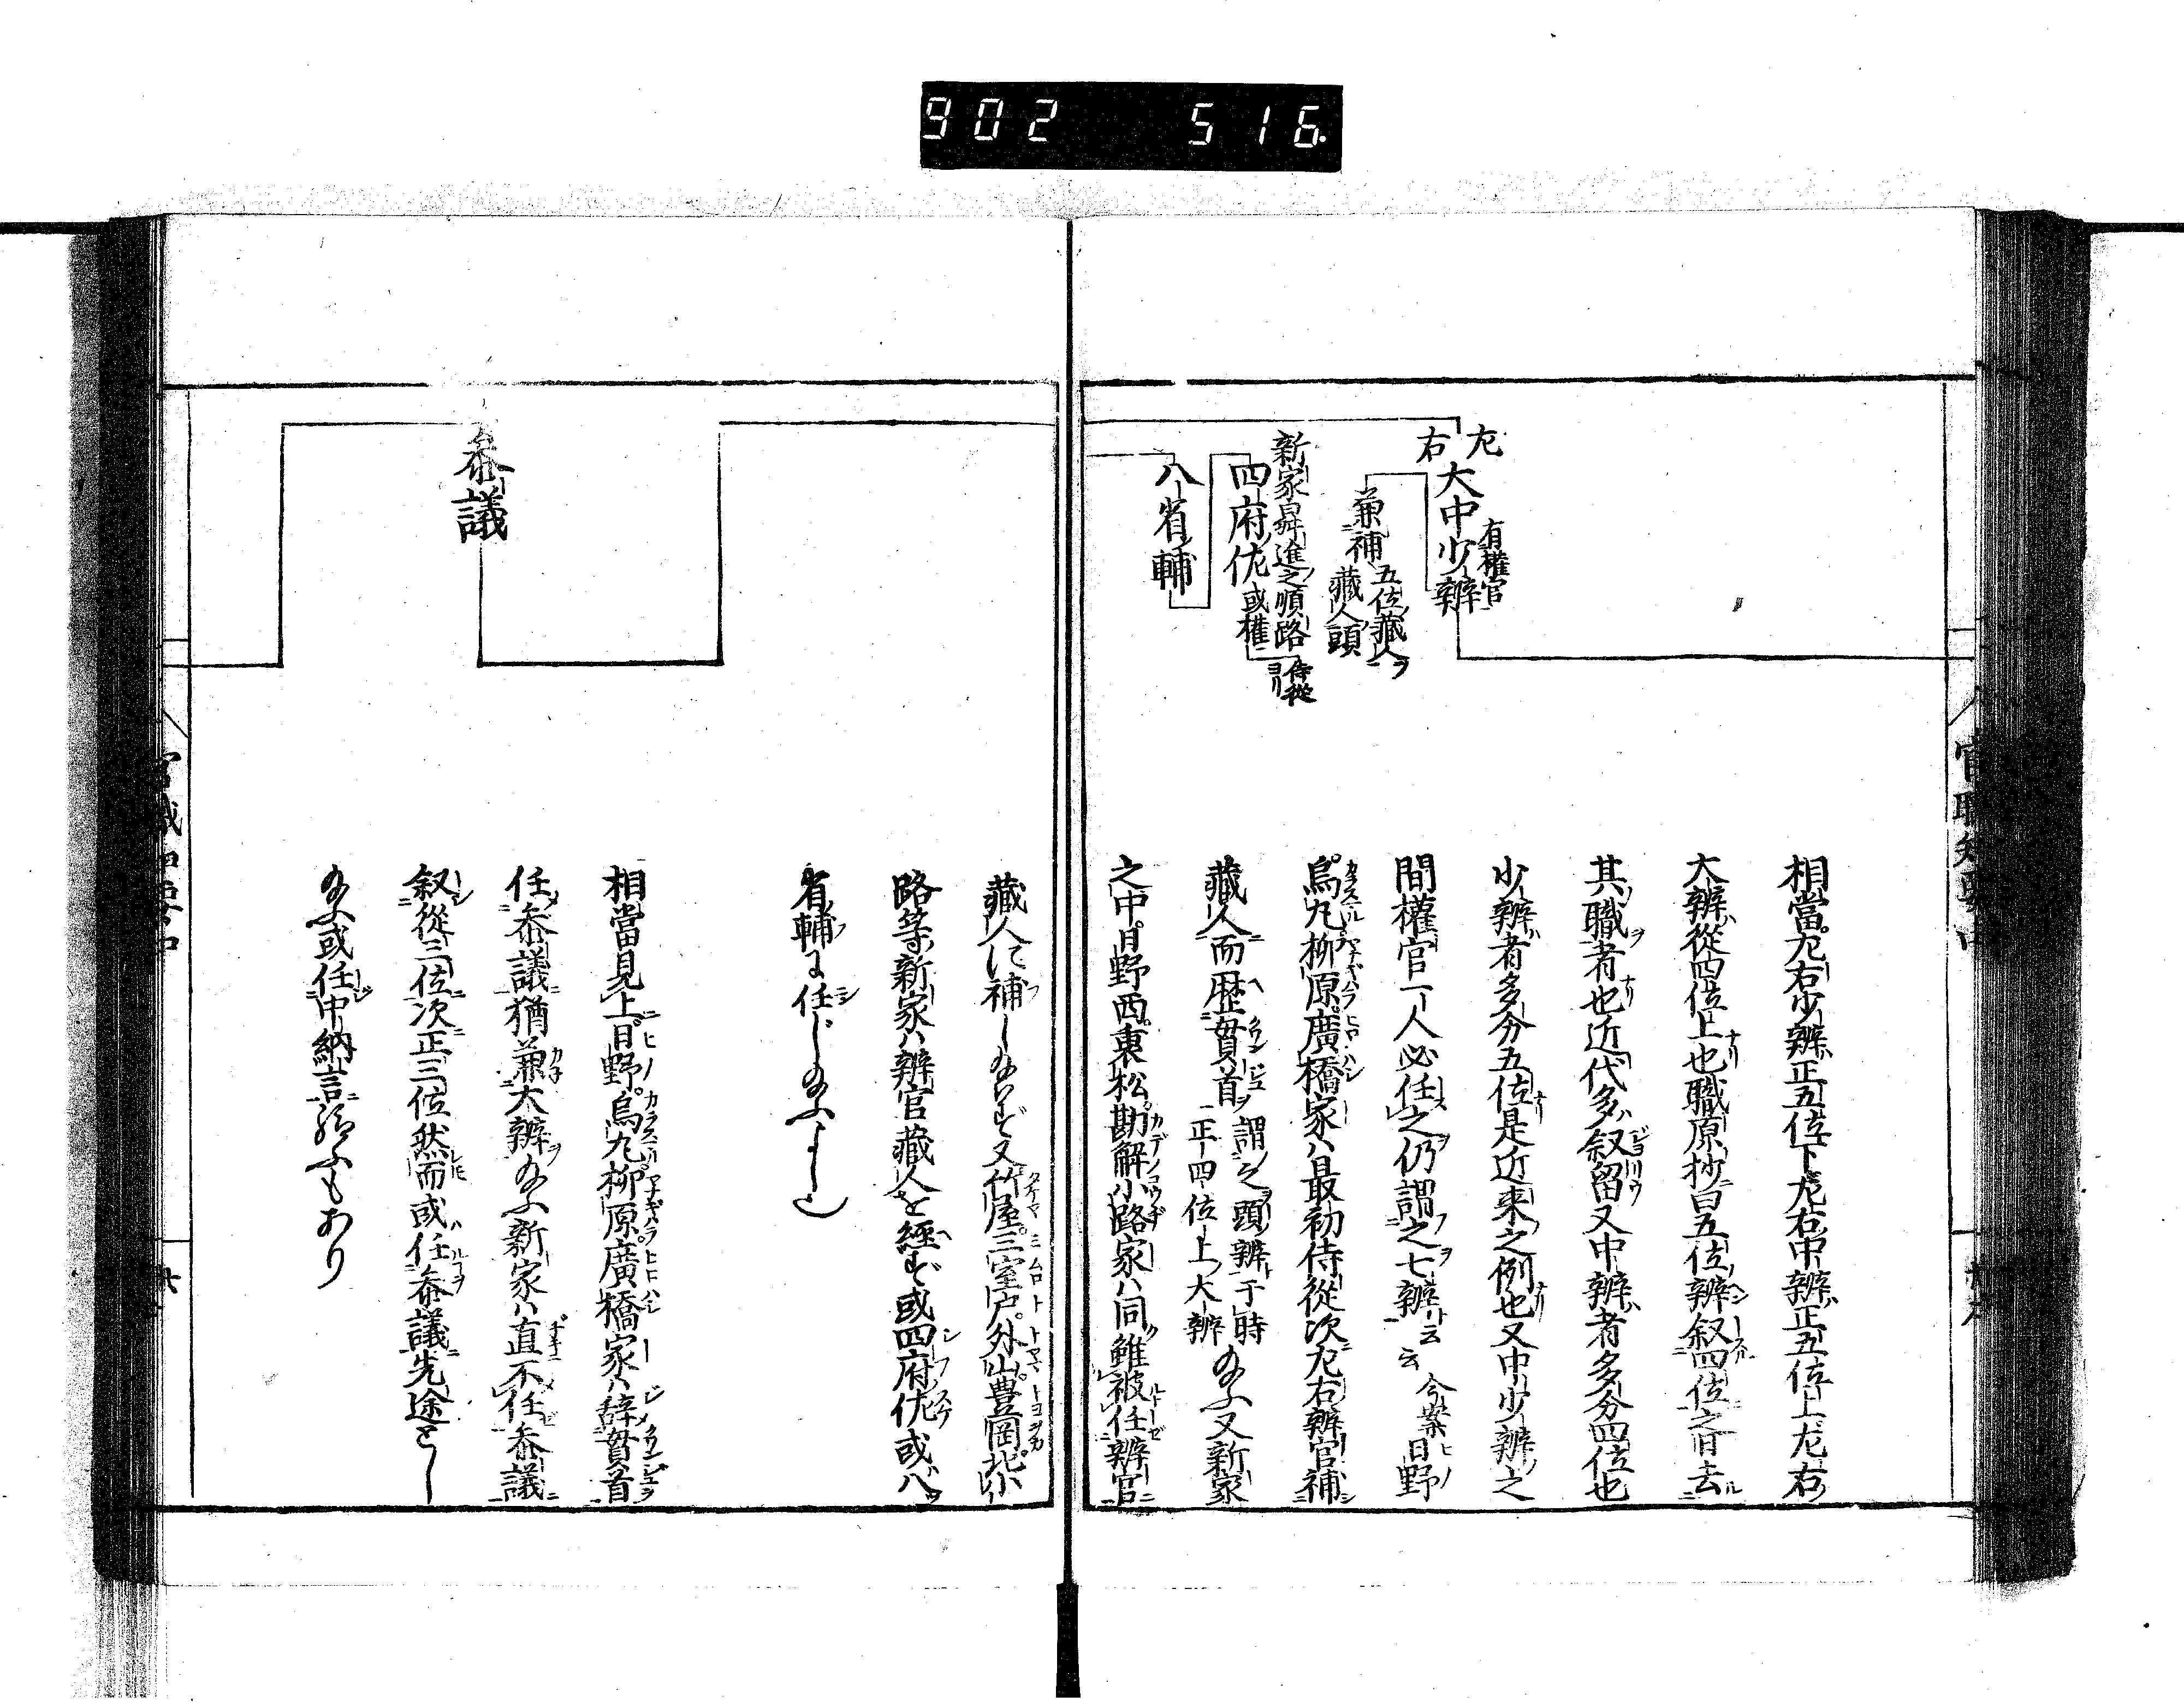 902 516
左右大中少辨 有權官
兼補 五位藏人ヲ 藏人頭
新家昇進之順路
四府佐 或權 侍從ヨリ
八省輔
相當左右少辨正五位下左右中辨正五位上左右
大辨從四位上也職原抄曰五位辨叙四位之日去
其職者也近代多叙留又中辨者多分四位也
少辨者多分五位是近来之例也又中少辨之
間權官一人必任之仍謂之七辨云云今案日野
烏丸柳原廣橋家ハ最初侍從次左右辨官補
藏人而歴貫首 謂之頭辨于時正四位上大辨 給ふ又新家
之中日野西裏松勘解小路家ハ同雖被任辨官
藏人に補し給はず又竹屋三室戸外山豊岡北小
路等新家ハ辨官藏人を經ず或四府佐或八
省輔に任じ給ふよし也
參議
相當見上日野烏丸柳原廣橋家ハ辭貫首
任參議猶兼大辨給ふ新家ハ直不任參議
叙從三位次正三位然而或任參議先途とし
給ふ或任中納言給ふもあり